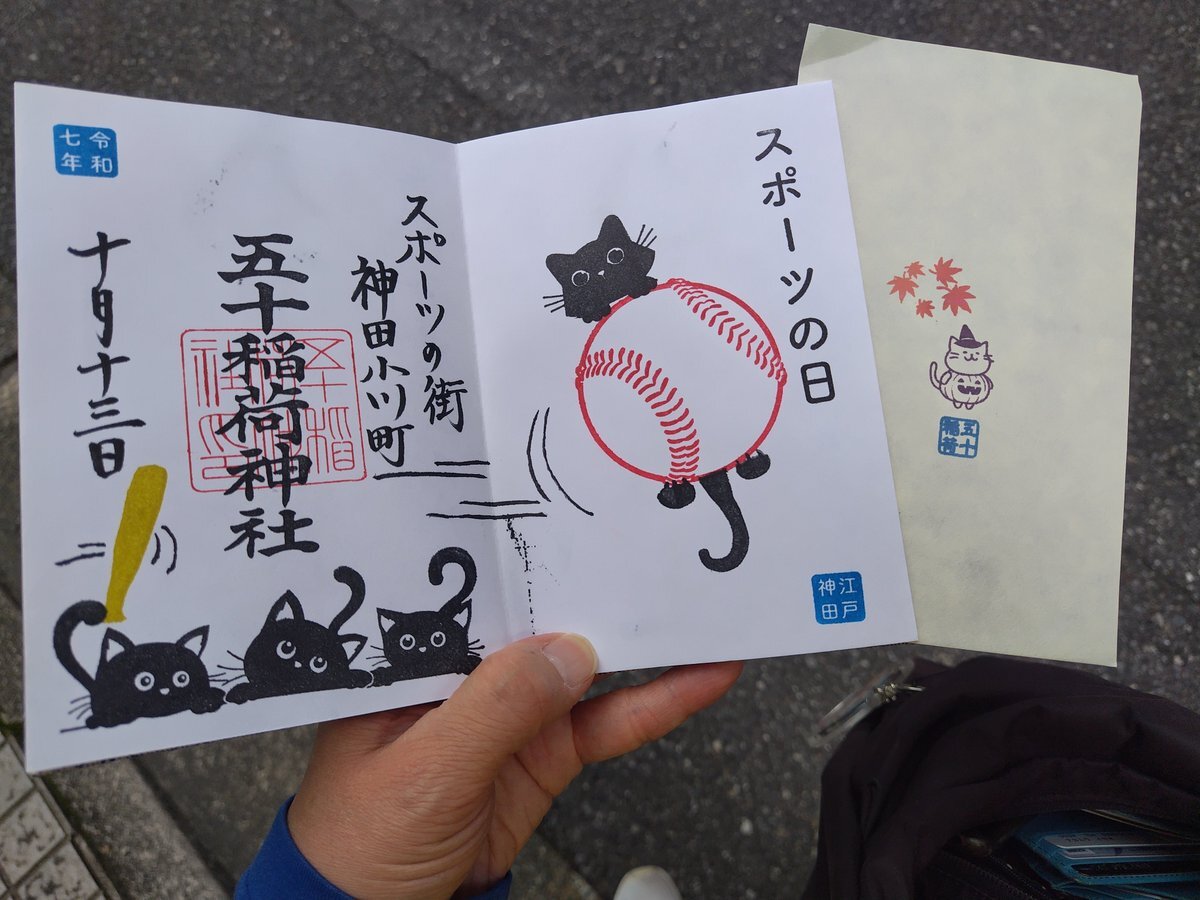 スポーツの日
江戸
神田
スポーツの街
神田小川町
五十稲荷神社
令和
七年
十月十三日
五十
稲荷